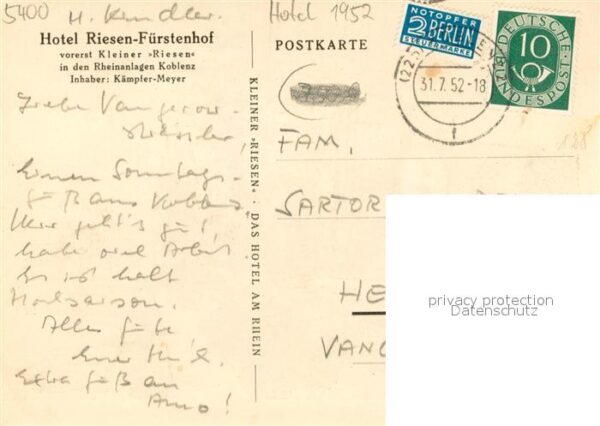 5400 H. Kindler. Hotel 1952
Hotel Riesen-Fürstenhof
vorerst Kleiner »Riesen«
in den Rheinanlagen Koblenz
Inhaber: Kämpfer-Meyer
Liebe Vangerow-
Einen Sonntags-
gruß aus Koblenz.
Hier geht's gut,
habe viel Arbeit
Es ist halt
Hochsaison.
Alles Gute
Euer
Extra Gruß an
Arno!
KLEINER »RIESEN« · DAS HOTEL AM RHEIN
POSTKARTE
NOTOPFER
2 BERLIN
STEUERMARKE
31.7.52-18
DEUTSCHE
10
BUNDESPOST
128
FAM.
SARTOR
HE
VANG
privacy protection
Datenschutz